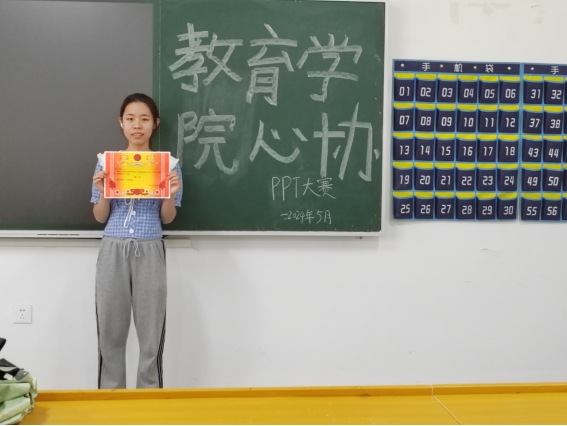 教育学
院心协
PPT大赛
-2024年5月
手机袋
手
01 02 03 04 05 06 31 32
07 08 09 10 11 12 37 38
13 14 15 16 17 18 43 44
19 20 21 22 23 24 49 50
25 26 27 28 29 30 55 56